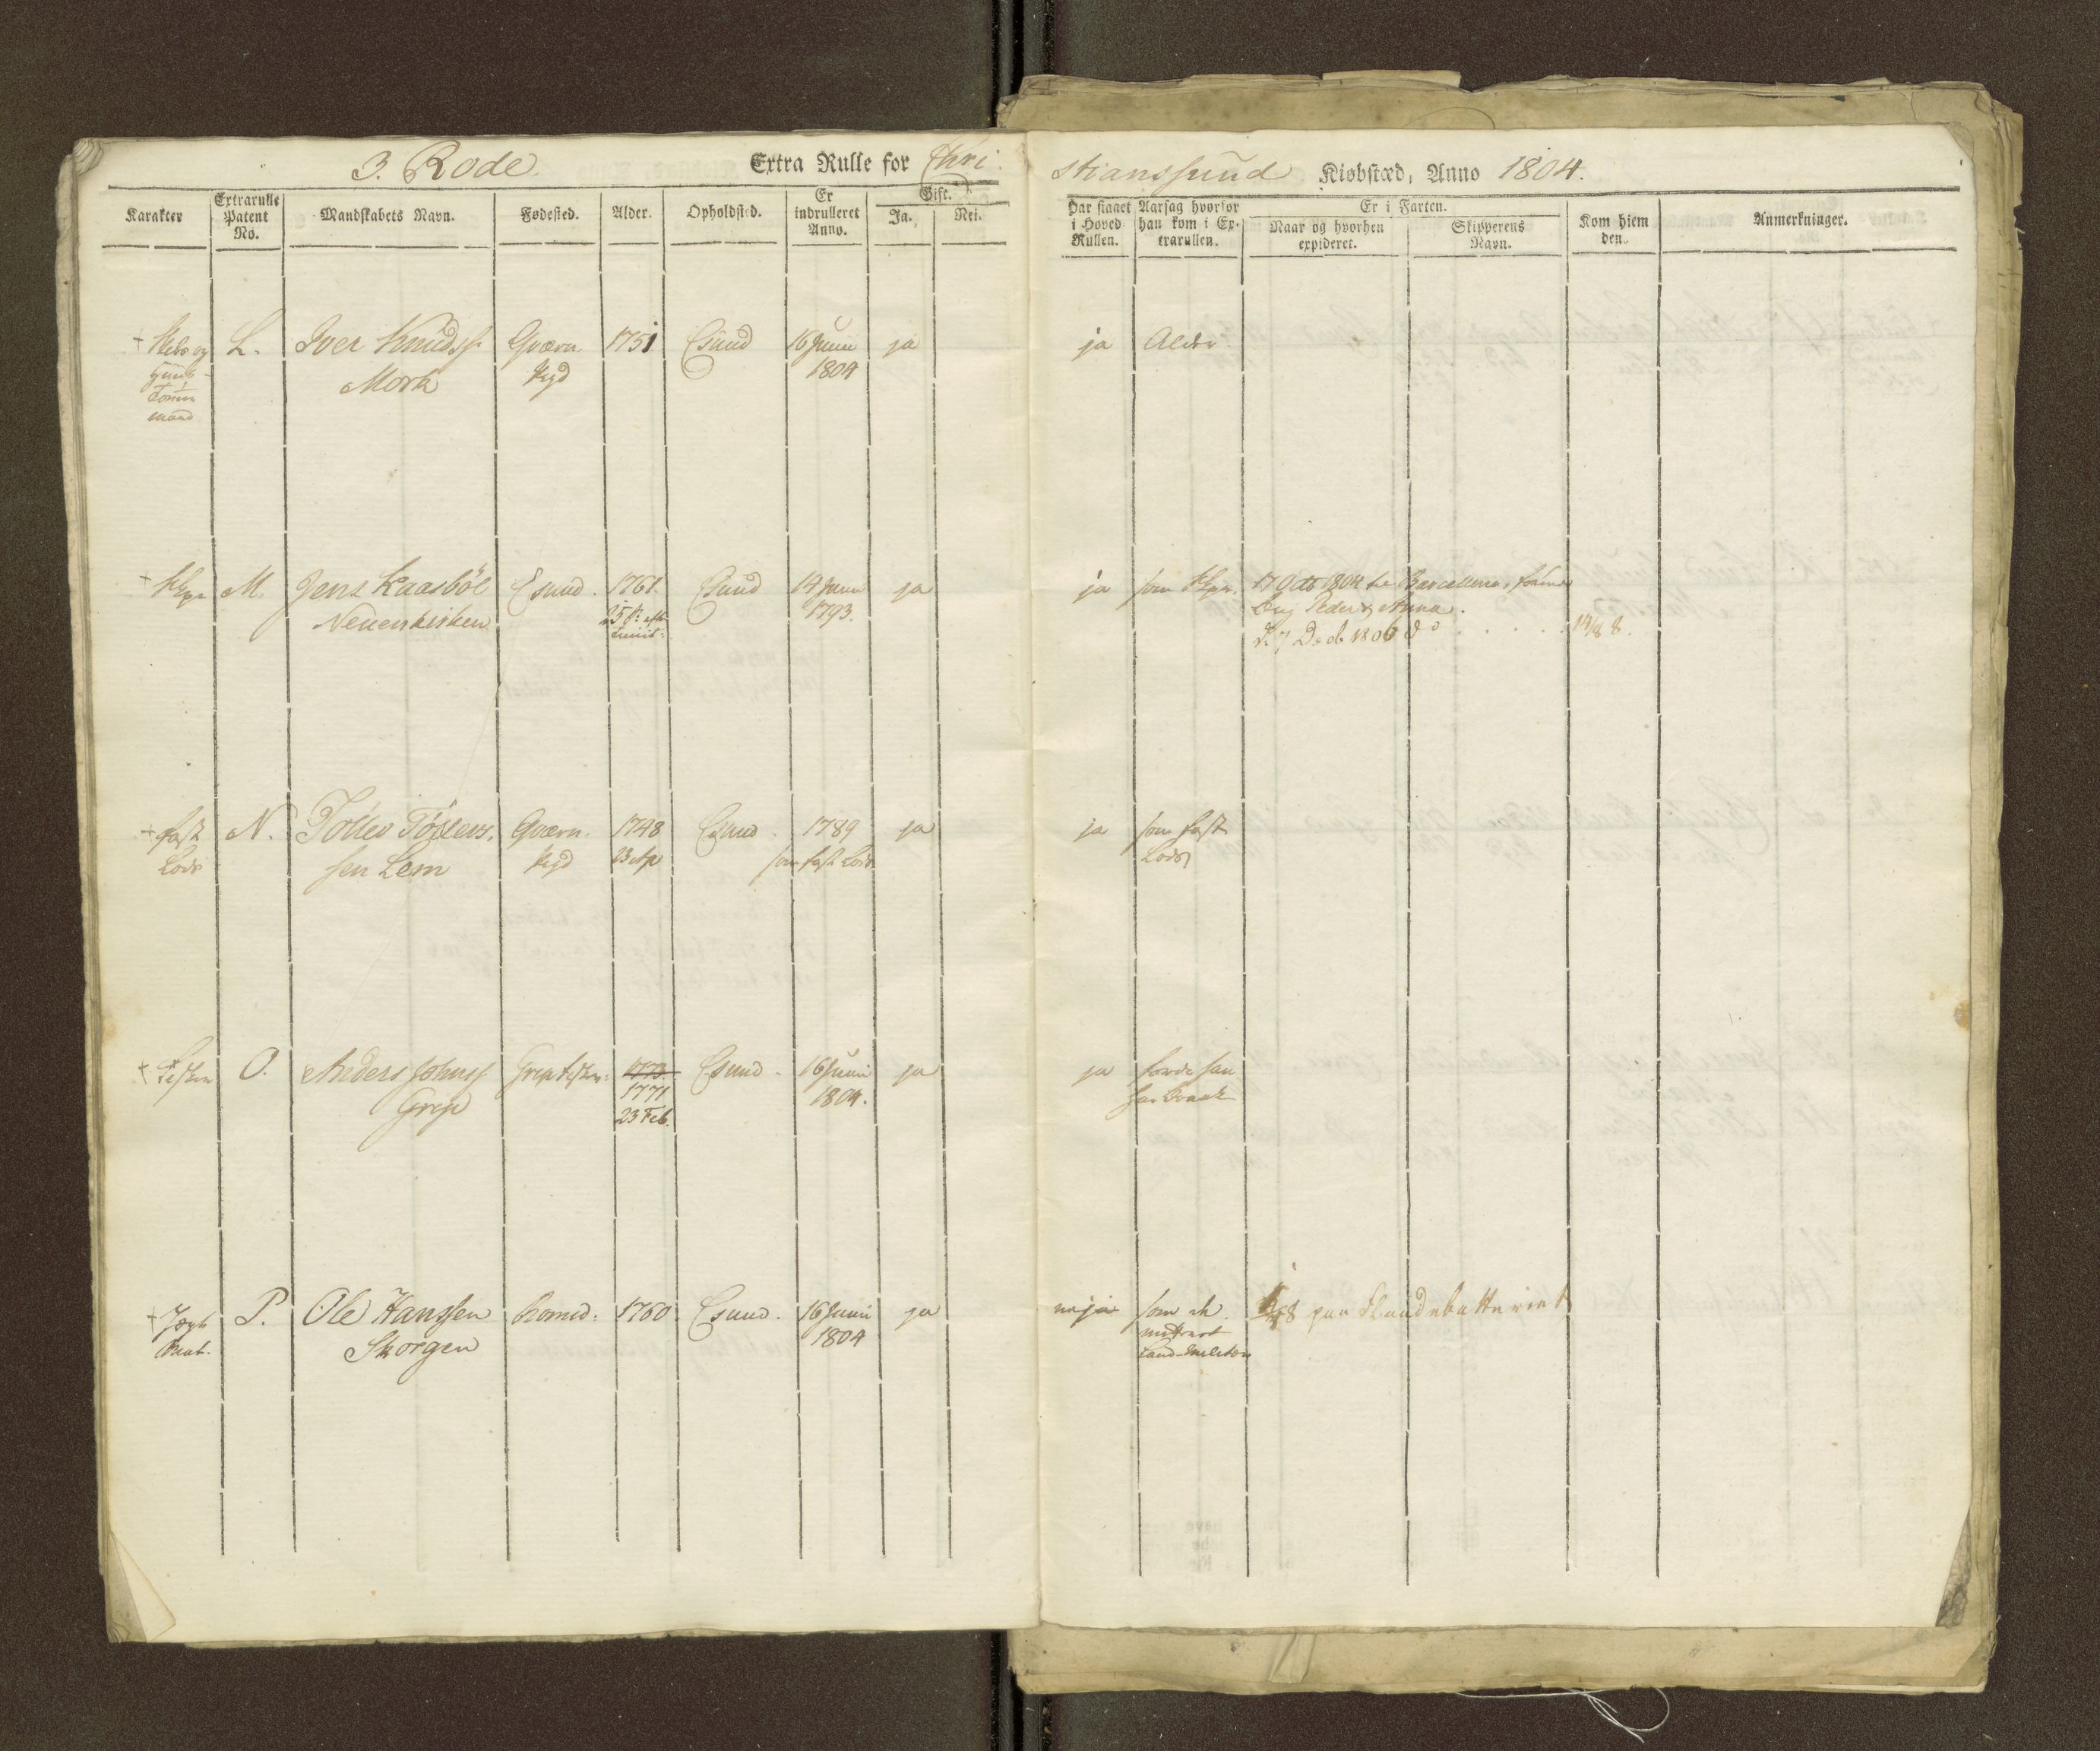 3. Rode Extra Rulle for Chri
stianssund Kiøbstæd, Anno 1804.
Karakter
Extrarulle
Patent
No.
Mandskabets Navn.
Fødested.
Alder.
Opholdsted.
Er
indrulleret
Anno.
Gift.
Ja.
Nei.
Har staaet
i Hoved
Rullen.
Aarsag hvorfor
han kom i Ex-
trarullen.
Er i Farten.
Naar og hvorhen
expideret.
Skipperens
Navn.
Kom hiem
den.
Anmerkninger.
Skibs og
Huus
Tømm
mand
L.
Iver Knudss:
Mork
Qværn
1751
Csund
16 Juni
1804
ja
ja
Alder
M.
Jens Kaasbøl
Neuenkirken
Csund.
1761.
Csund
14 Juni
1793.
ja
ja
som
17 Octb 1804 Barcellona,
Brig Peder & Anna.
d. 7 Decb 1806 do
14/8 8.
fast
Lods
N.
Tollev Tostens.
sen Lem
Qværn
1748
23 Ap
Csund
1789
som fast Lods
ja
ja
som fast
Lods
Fisker
O.
Anders Johnss
Grip
Grip
1773.
1771
23 Feb.
Csund
16 Juni
1804.
ja
ja
P.
Ole Hanssen
Skorgen
Romsd.
1760
Csund.
16 Juni
1804
ja
nei ja
som
Land-
8 paa batteriet